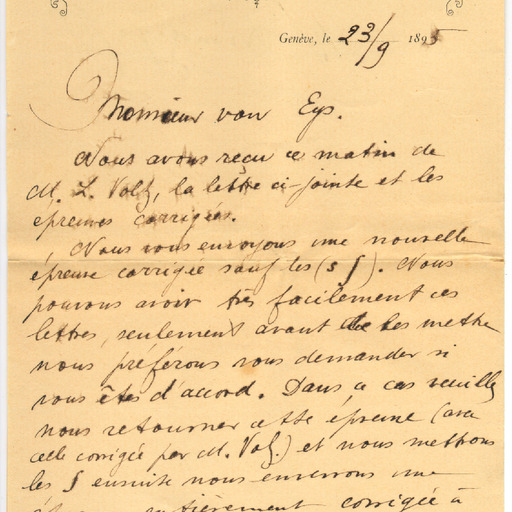 Genève, le 23/9 1895
Monsieur van Eys.
Nous avons reçu ce matin de
M. L. Volz, la lettre ci-jointe et les
épreuves corrigées.
Nous vous envoyons une nouvelle
épreuve corrigée sauf les (s ſ). Nous
pouvons avoir très facilement ces
lettres, seulement avant de les mettre
nous préférons vous demander si
vous êtes d'accord. Dans ce cas veuillez
nous retourner cette épreuve (avec
celle corrigée par M. Volz.) et nous mettrons
les ſ ensuite nous enverrons une
entièrement corrigée à